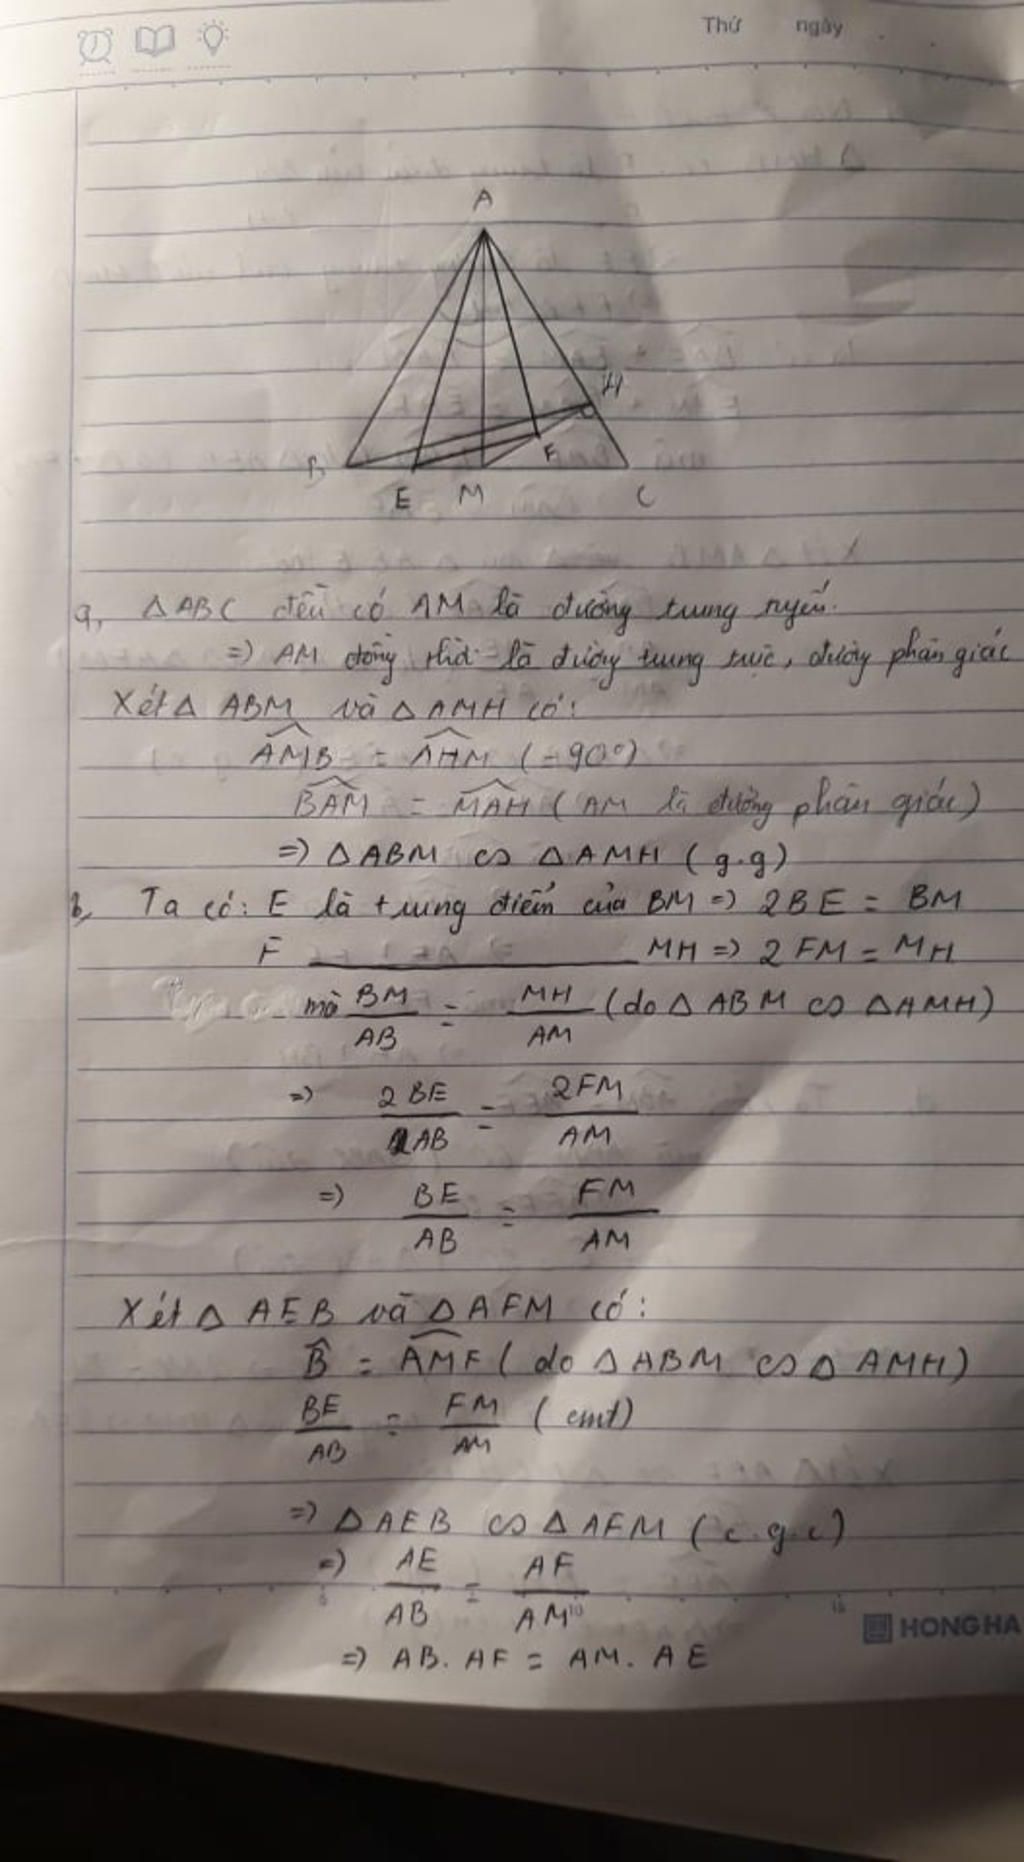 Thứ ngày
A
H
B
F
E M C
a, △ABC đều có AM là đường trung tuyến.
=) AM đồng thời là đường trung trực, đường phân giác
Xét △ ABM và △ AMH có:
\widehat{AMB} = \widehat{AHM} (=90°)
\widehat{BAM} = \widehat{MAH} ( AM là đường phân giác)
=) △ABM ∽ △AMH (g.g)
b, Ta có: E là trung điểm của BM =) 2BE = BM
F ______ MH =) 2FM = MH
mà BM/AB = MH/AM (do △ ABM ∽ △AMH)
=) 2BE/AB = 2FM/AM
=) BE/AB = FM/AM
Xét △ AEB và △AFM có:
\widehat{B} = \widehat{AMF} ( do △ABM ∽ △ AMH)
BE/AB = FM/AM (cmt)
=) △AEB ∽ △AFM (c.g.c)
=) AE/AB = AF/AM
5 10 15
HONG HA
=) AB. AF = AM. AE